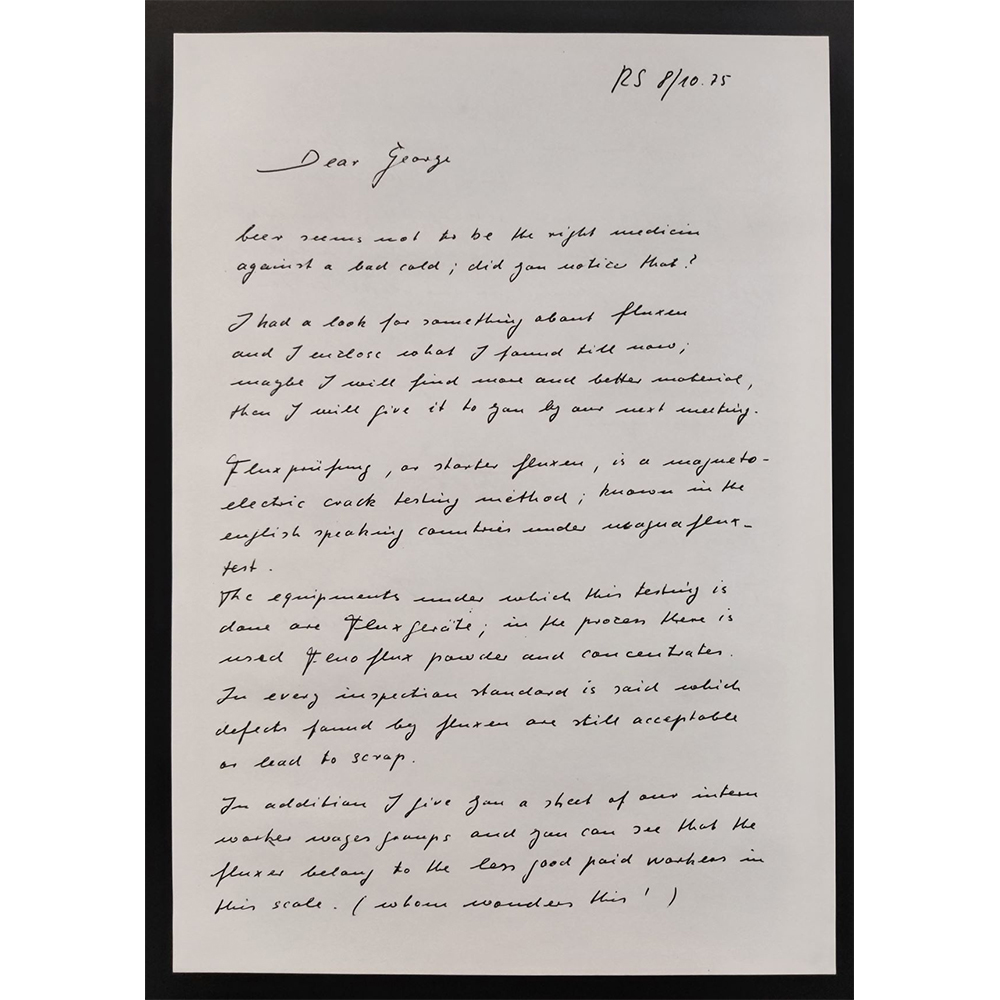 RS 8/10.75
Dear George
beer seems not to be the right medicin
against a bad cold; did you notice that?
I had a look for something about fluxen
and I enclose what I found till now;
maybe I will find more and better material,
then I will give it to you by our next meeting.
Fluxprüfung, or shorter fluxen, is a magneto-
electric crack testing method; known in the
english speaking countries under magnaflux-
test.
The equipments under which this testing is
done are Fluxgeräte; in the process there is
used Fenoflux powder and concentrates.
In every inspection standard is said which
defects found by fluxen are still acceptable
or lead to scrap.
In addition I give you a sheet of our intern
worker wages groups and you can see that the
fluxer belong to the less good paid workers in
this scale. (whom wonders this!)